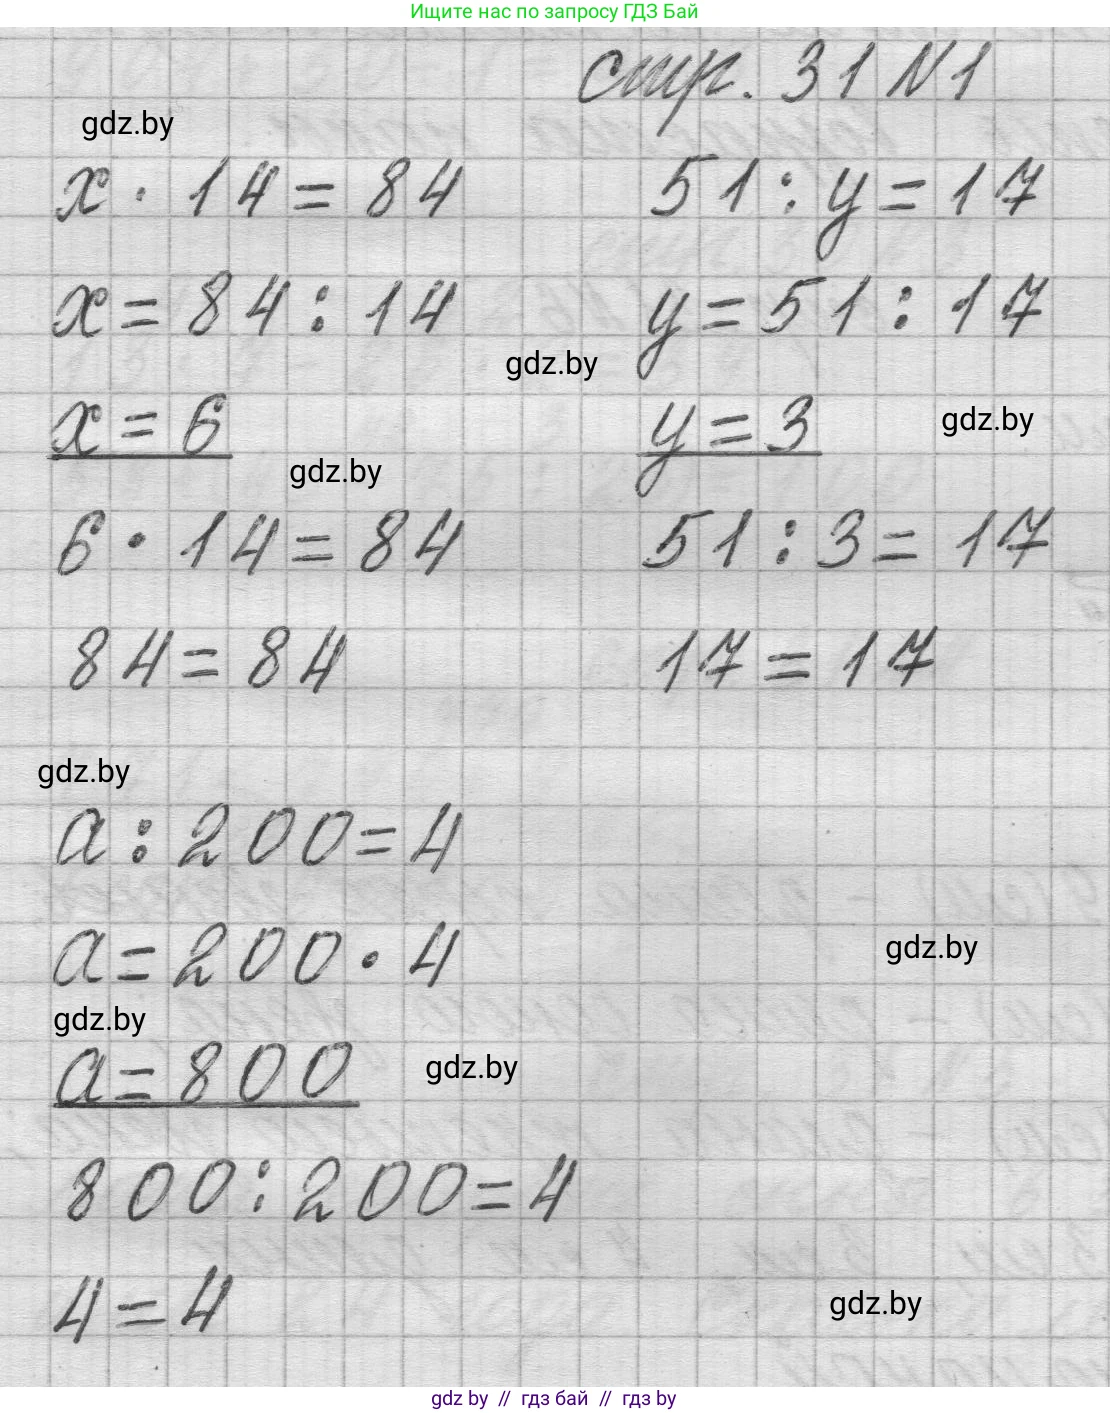 Ищите нас по запросу ГДЗ Бай
стр. 31 №1
gdz.by
x · 14 = 84
x = 84 : 14
x = 6
gdz.by
6 · 14 = 84
84 = 84
51 : y = 17
y = 51 : 17
gdz.by
y = 3
gdz.by
51 : 3 = 17
17 = 17
gdz.by
a : 200 = 4
a = 200 · 4
gdz.by
gdz.by
a = 800
gdz.by
800 : 200 = 4
4 = 4
gdz.by
gdz by // гдз бай // гдз by